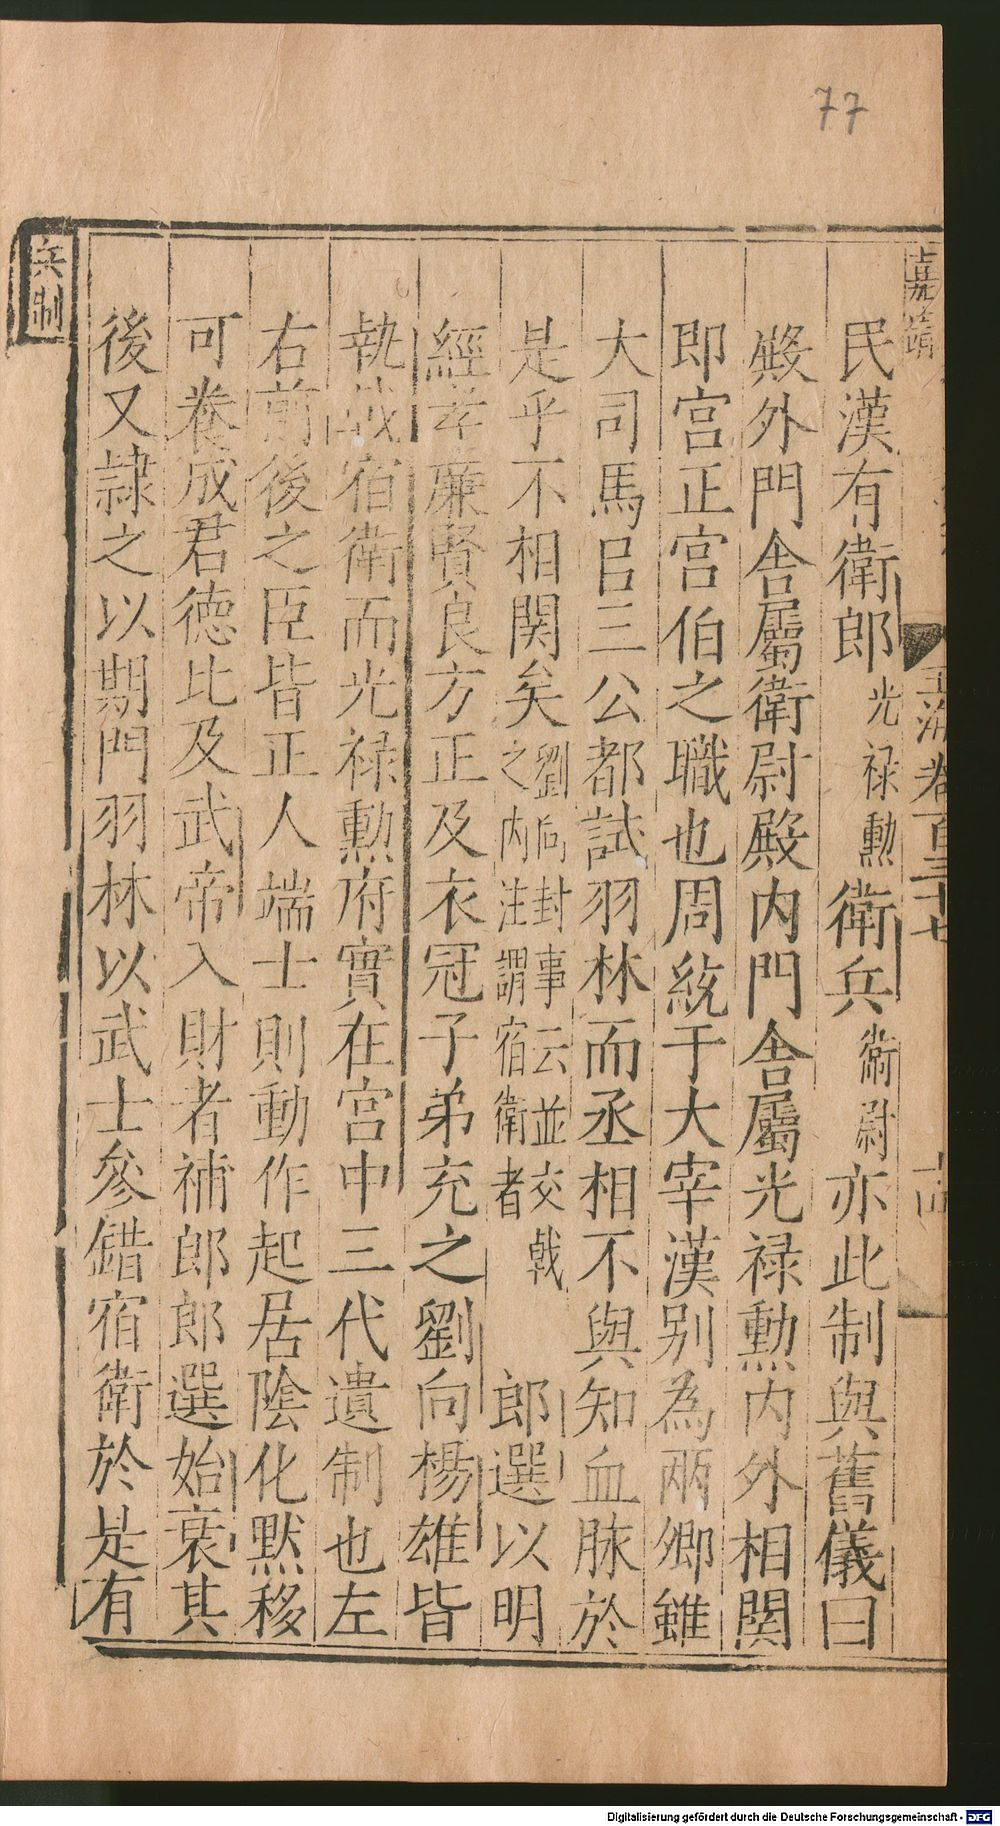 77
嘉靖
玉海卷百三十七
十四
民漢有衛郎光禄勲衛兵衛尉亦此制與舊儀曰
殿外門舎屬衛尉殿内門舎屬光禄勲内外相関
即宫正宫伯之職也周統于大宰漢别為兩卿雖
大司馬㠯三公都試羽林而丞相不與知血脉於
是乎不相関矣劉向封事云並交戟之内注謂宿衛者郎選以明
經孝廉賢良方正及衣冠子弟充之劉向楊雄皆
執㦸宿衛而光禄勲府實在宫中三代遺制也左
右前後之臣皆正人端士則動作起居陰化黙移
可養成君徳比及武帝入財者補郎郎選始衰其
後又隷之以期門羽林以武士參錯宿衛於是有
兵制
Digitalisierung gefördert durch die Deutsche Forschungsgemeinschaft - DFG